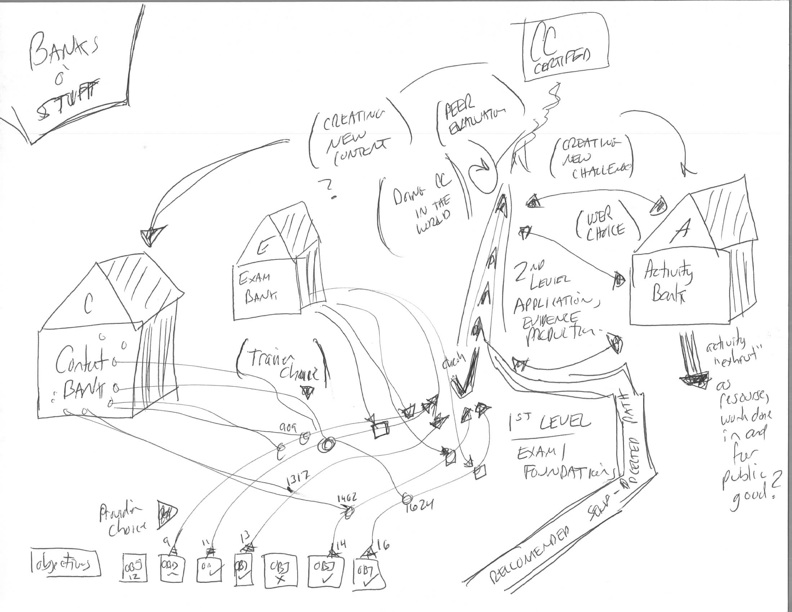 BANKS
O'
STUFF
CC
CERTIFIED
(CREATING
NEW
CONTENT)
?
(PEER
EVALUATION)
(DOING CC
IN THE
WORLD)
(CREATING
NEW
CHALLENGE)
(USER
CHOICE)
C
Content
BANK
E
EXAM
BANK
A
Activity
Bank
2ND
LEVEL
APPLICATION,
EVIDENCE
PRODUCTION.
activity
"exhaust"
as
resource,
work done
in and
for
public
good?
(Trainer
Choice)
1ST LEVEL
EXAM/
FOUNDATIONS
RECOMMENDED
SELF-DIRECTED PATH
909
1317
1462
1624
Provider
choice
9
11
13
14
16
objectives
OBJ
12
OBJ
OBJ
OBJ
OBJ
OBJ